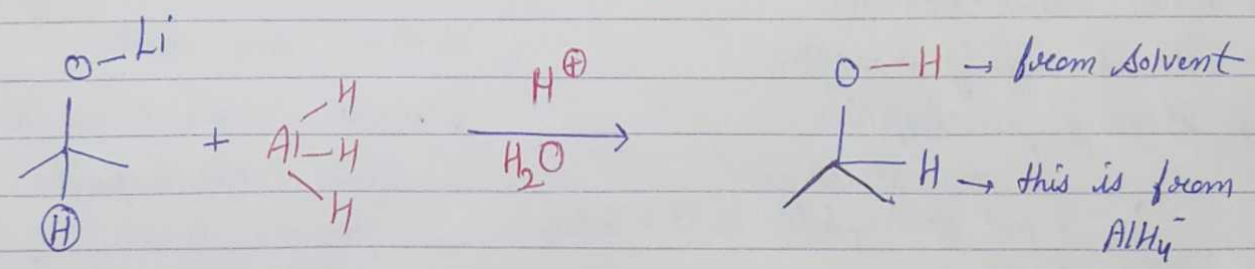 O—Li
H
+ Al—H
H
H
H⊕
H₂O
O—H → from solvent
H → this is from
AlH₄⁻